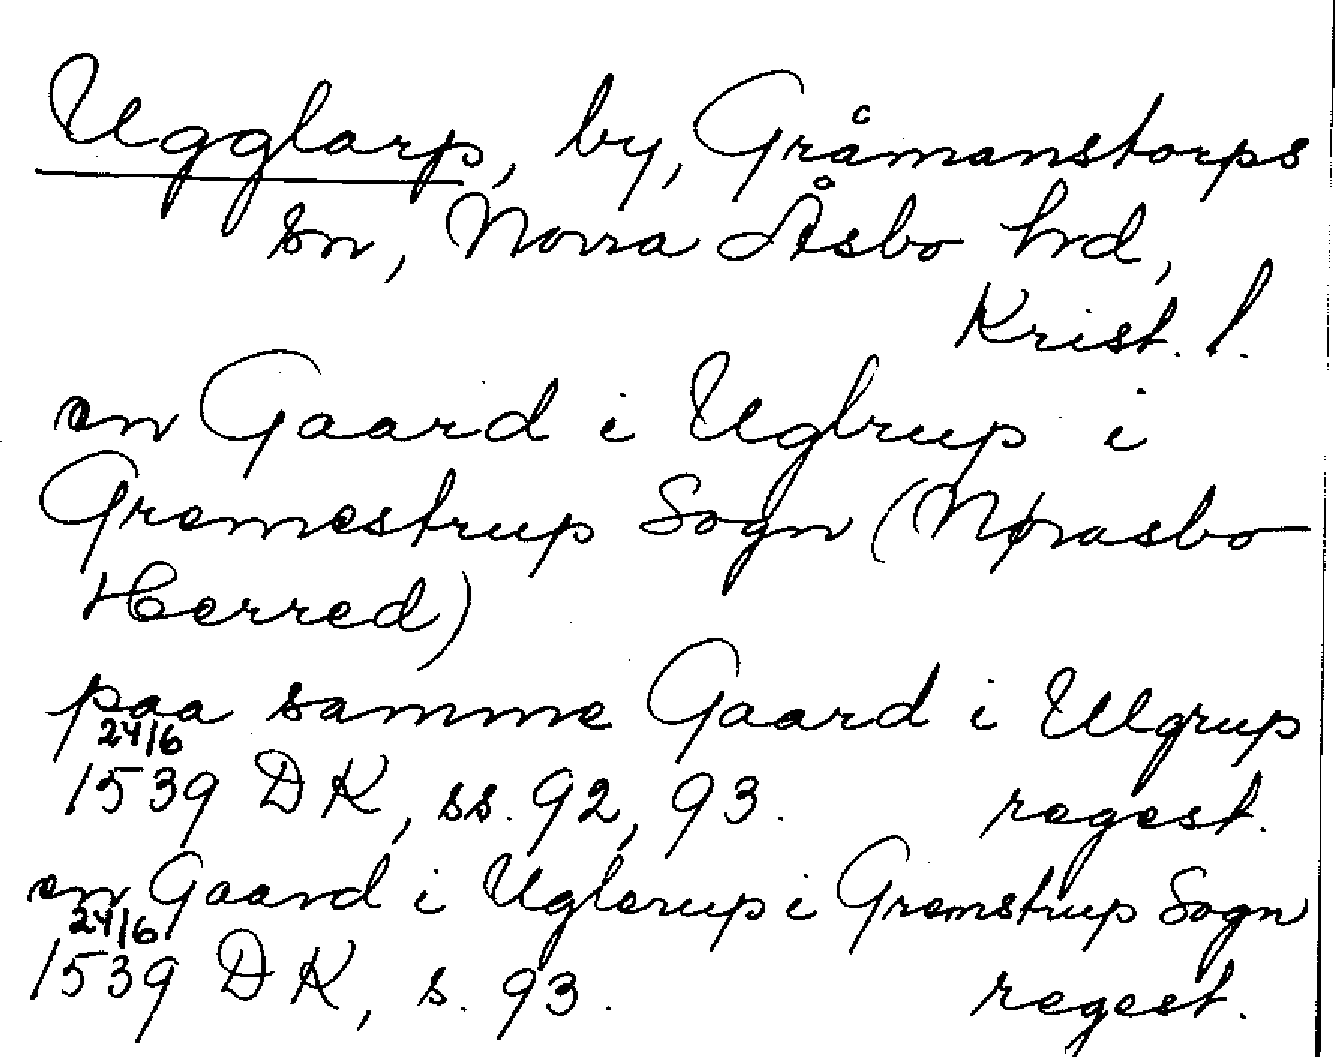 Ugglarp, by, Gråmanstorps
sn, Norra Åsbo hrd,
Krist. l.
en Gaard i Uglrup i
Gremestrup Sogn (Nørasbo
Herred)
paa samme Gaard i Ulgrup
24/6
1539 DK, ss. 92, 93. regest.
en Gaard i Uglerup i Gremstrup Sogn
24/6
1539 DK, s. 93. regest.